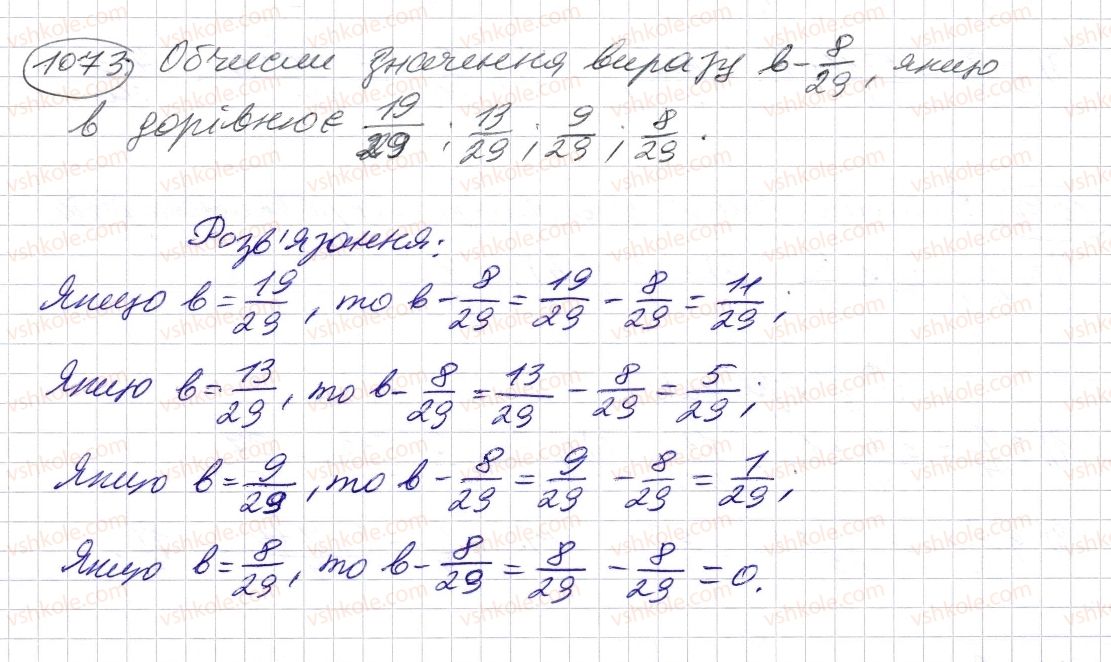 1073 Обчисли значення виразу в - 8/29, якщо
в дорівнює 19/29; 13/29; 9/29; 8/29.
Розв'язання:
Якщо в = 19/29, то в - 8/29 = 19/29 - 8/29 = 11/29;
Якщо в = 13/29, то в - 8/29 = 13/29 - 8/29 = 5/29;
Якщо в = 9/29, то в - 8/29 = 9/29 - 8/29 = 1/29;
Якщо в = 8/29, то в - 8/29 = 8/29 - 8/29 = 0.